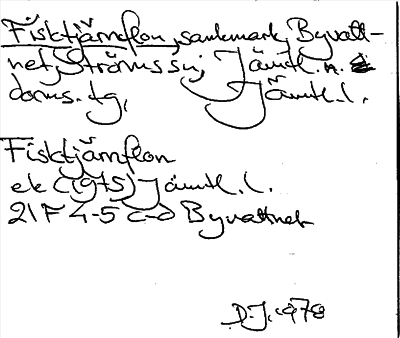 Fisktjärnflon, sankmark, Byvatt-
net, Ströms sn, Jämtl.
doms. tg, Jämtl. l.
Fisktjärnflon
ek C (9+5) Jämtl. l.
21 F 4-5 c-d Byvattnet
D.J. 1978